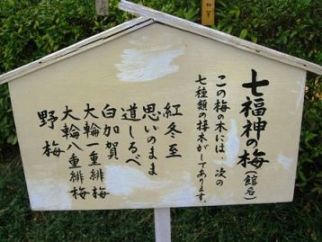 七福神の梅(館名)
この梅の木には、次の
七種類の接木がしてあります。
紅冬至
思いのまま
道しるべ
白加賀
大輪一重緋梅
大輪八重緋梅
野梅